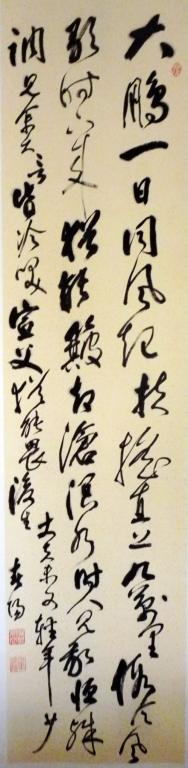 大鵬一日同風起扶搖直上九萬里假令風
歇時下來猶能簸却滄溟水時人見我恒殊
調見余大言皆冷笑宣父猶能畏後生丈夫未可輕年少